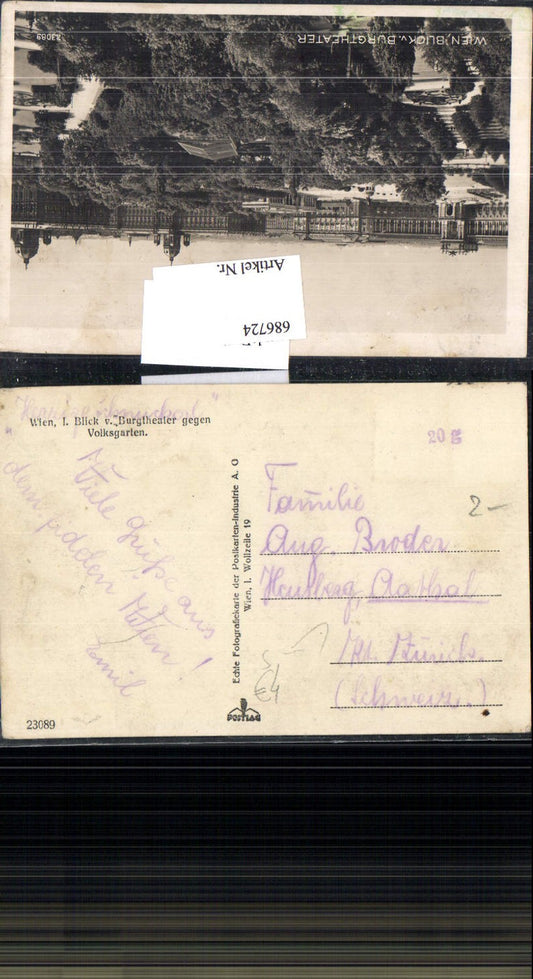 WIEN, BLICK v. BURGTHEATER
23089
Artikel Nr.
686724
Wien, I. Blick v. Burgtheater gegen
Volksgarten.
Viele Grüße aus
dem Wien!
Emil
23089
Echte Fotografiekarte der Postkarten-Industrie A. G
Wien, I. Wollzeile 19
POSTIAG
20 g
2-
Familie
Aug. Broder
Aathal
Kt. Zürich.
(Schweiz.)
€4